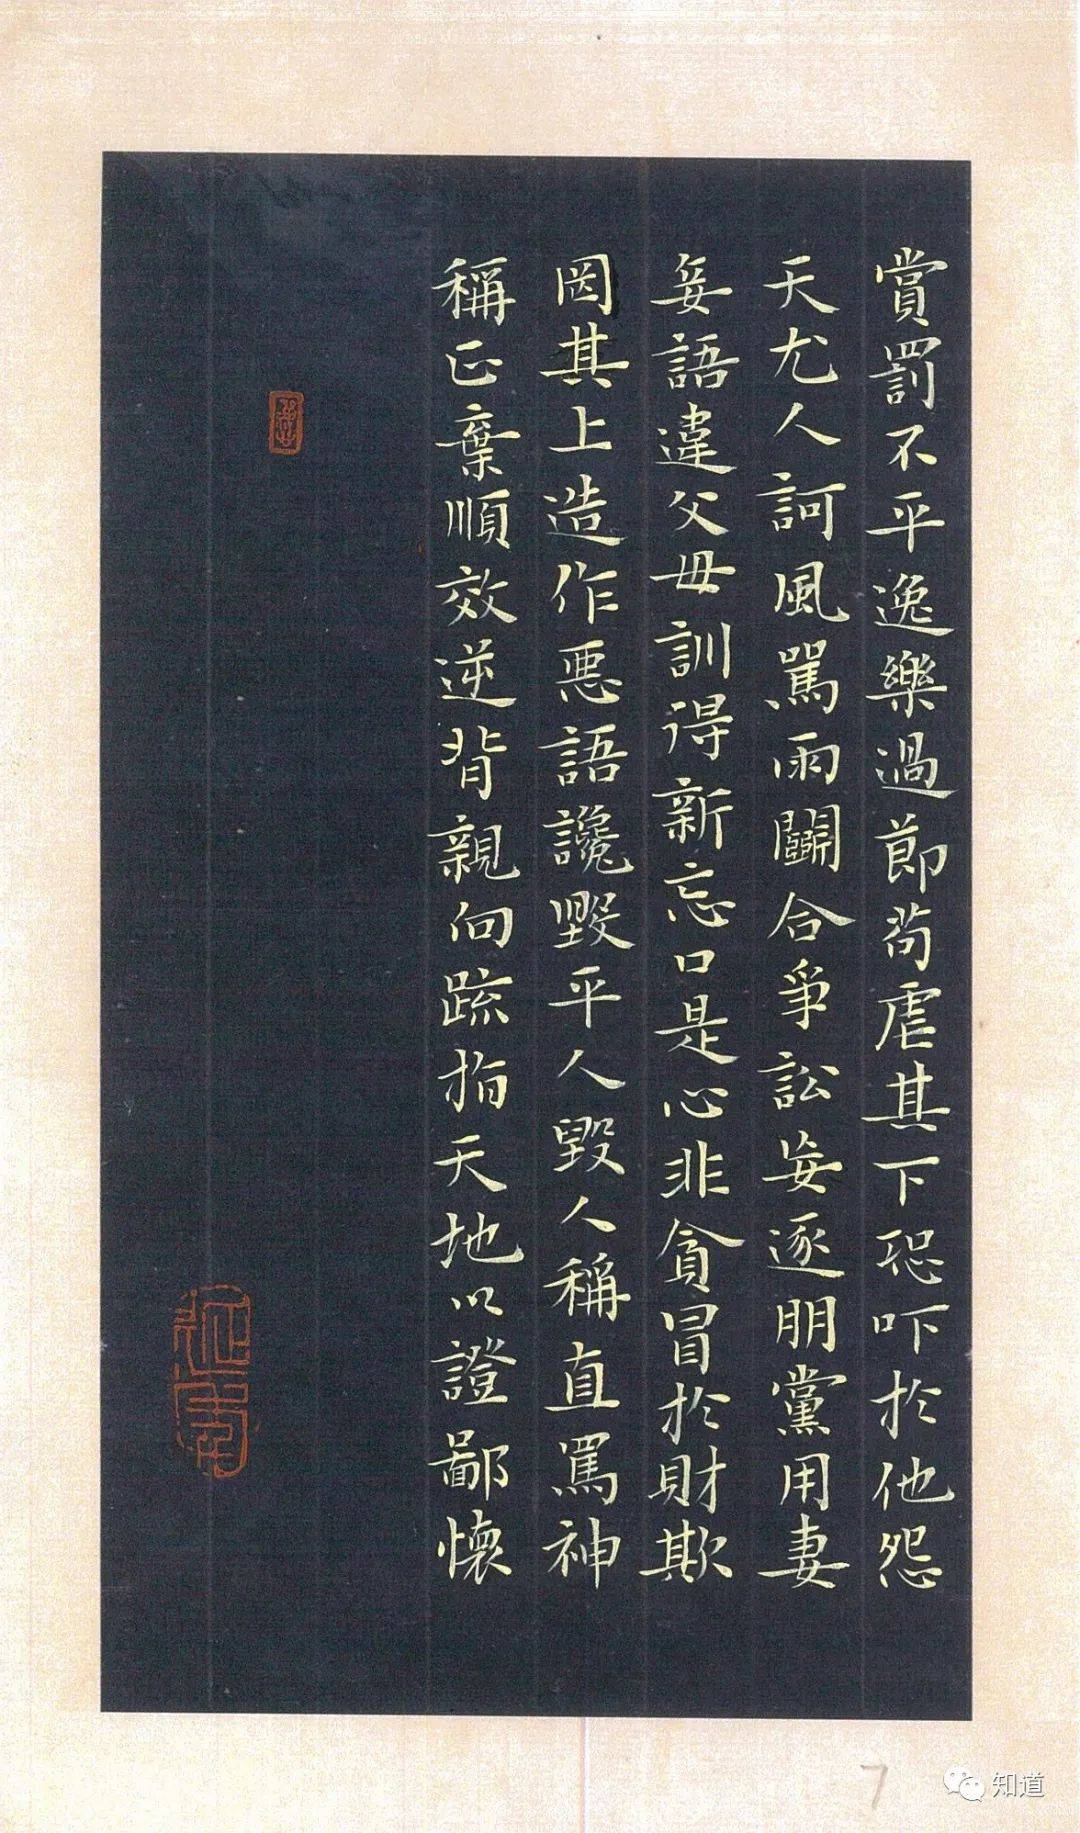 賞罰不平逸樂過節苟虐其下恐吓於他怨
天尤人訶風罵雨鬭合爭訟妄逐朋黨用妻
妾語違父母訓得新忘口是心非貪冒於財欺
罔其上造作惡語讒毀平人毀人稱直罵神
稱正棄順效逆背親向疏指天地以證鄙懷
7
知道